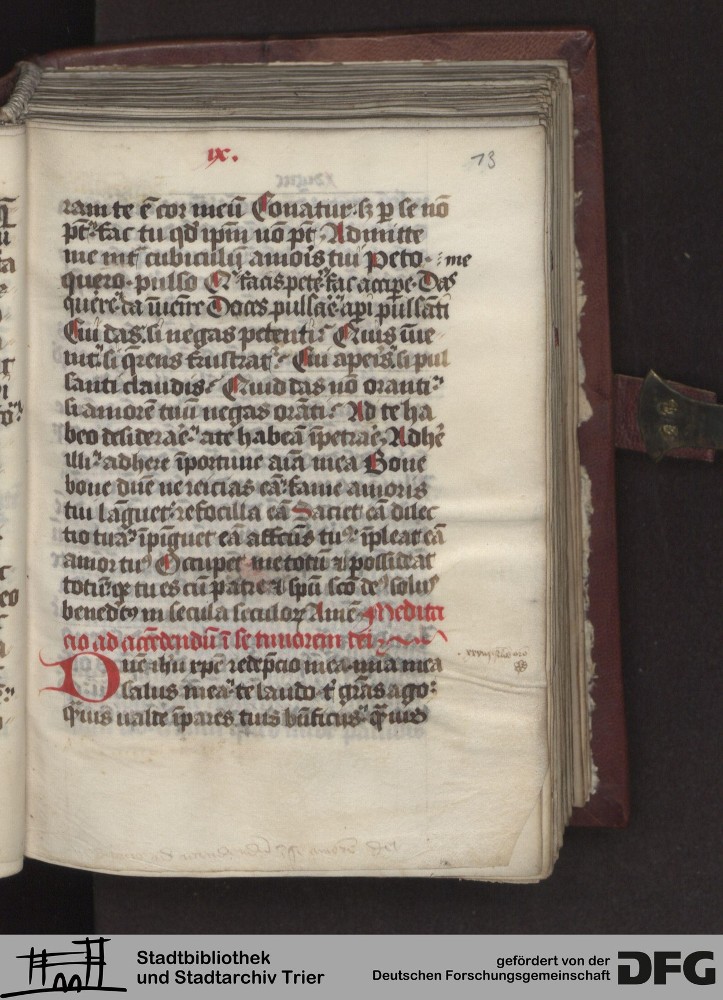 ix.
13
ram te ē cor meū Conatur. sʒ ꝑ se nō
pt᷑. fac tu qd̕ ipm̄ nō pt᷑. Admitte
me int᷑ cubiculū amoris tui Peto. me
quero. pulso Qͥ facis petē fac accipe. Das
querē da īuēire Doces pulsāe. aꝑi pulsāti
Cui das. si negas petenti. Quis īue
nit. si q̄rens frustrat᷑. Cui aperis. si pul
santi claudis. Quid das nō oranti.
si amorē tuū negas orāti. Ad te ha
beo desiderae. a te habeā īpetrae. Adhē
illi. adhere īportune aīa mea Bone
bone dn̄e ne reicias eā. fame amoris
tui lāguet. refocilla eā Saciet eā dilec
tio tua. īpīguet eā affectus tuꝰ. īpleat eā
amor tuꝰ. Occupet me totū ⁊ possideat
totū. qꝛ tu es cū patre ⁊ spū scō deꝰ solus
benedc̄us in secula seculoꝝ Amē Medita
cio ad accēdendū ī se timorem dei
Dn̄e ihu xp̄e redēpcio mea. mīa mea
salus mea. te laudo. tͥ grās ago.
q̄uis ualde īpares tuis bn̄ficiis. q̄uis
Stadtbibliothek
und Stadtarchiv Trier
gefördert von der
Deutschen Forschungsgemeinschaft
DFG